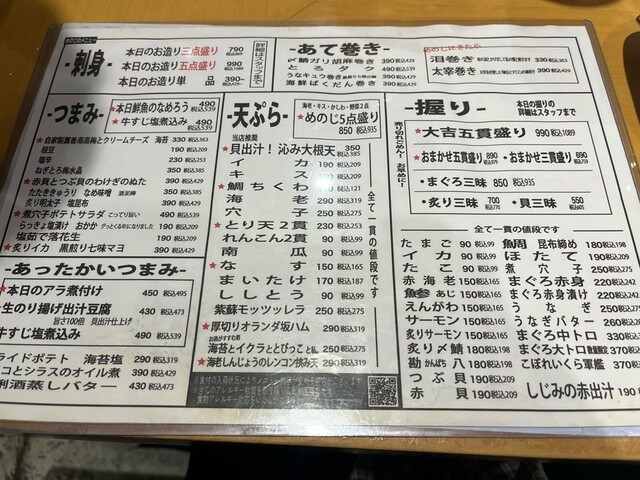 -刺身-
本日のお造り三点盛り 790 税込869
本日のお造り五点盛り 990 税込1089
本日のお造り単品 390～ 税込429～
詳細はスタッフまで
-つまみ-
★本日鮮魚のなめろう 490 税込539
★牛すじ塩煮込み 490 税込539
★自家製薫香南高梅とクリームチーズ 海苔 330 税込363
枝豆 190 税込209
塩辛 230 税込253
ねぎとろ梅水晶 350 税込385
★赤貝とつぶ貝のわけぎのぬた 390 税込429
たたききゅうり なめ味噌 120 税込132
炙り明太子 塩昆布 390 税込429
★煮穴子ポテトサラダ とってり旨い 490 税込539
らっきょ塩漬け おかか 190 税込209
塩茹で落花生 190 税込209
★炙りイカ 黒煎り七味マヨ 390 税込429
-あったかいつまみ-
★本日のアラ煮付け 450 税込495
生のり揚げ出汁豆腐 430 税込473
旨さ100倍 貝出汁仕上げ
牛すじ塩煮込み 490 税込539
ライドポテト 海苔塩 290 税込319
コとシラスのオイル煮 390 税込429
酒蒸しバター 430 税込473
-天ぷら-
海老・キス・かしわ・野菜2点
★めのじ5点盛り 850 税込935
当店推奨
★貝出汁！沁み大根天 350 税込385
イカ 190 税込209
キス 190 税込209
★鯛ちくわ 110 税込121
海老 290 税込319
穴子 250 税込275
★とり天2貫 230 税込253
れんこん2貫 90 税込99
南瓜 90 税込99
★なす 150 税込165
まいたけ 170 税込187
ししとう 90 税込99
紫蘇モッツァレラ 250 税込275
★厚切りオランダ坂ハム 290 税込319
お酒がすすむ君
海苔とイクラととびっこと糀 250 税込275
★海老しんじょうのレンコン挟み天 290 税込319
全て一貫の値段です
-あて巻き-
〆鯖ガリ胡麻巻き 390 税込429
とろタク 490 税込539
うなキュウ巻き 390 税込429
海鮮ばくだん巻き 390 税込429
めのじにきたら
泪巻き 330 税込363
太宰巻き 390 税込429
-握り-
本日の握りの詳細はスタッフまで
売り切れごめん！お早めに…
★大吉五貫盛り 990 税込1089
★おまかせ五貫盛り 890 税込979
★おまかせ三貫盛り 690 税込759
・まぐろ三昧 850 税込935
・炙り三昧 700 税込770
・貝三昧 550 税込605
全て一貫の値段です
たまご 90 税込99
イカ 90 税込99
たこ 90 税込99
赤海老 150 税込165
鯵 あじ 150 税込165
えんがわ 150 税込165
サーモン 150 税込165
炙りサーモン 180 税込198
炙り〆鯖 180 税込198
勘八 かんぱち 180 税込198
つぶ貝 190 税込209
赤貝 190 税込209
魚周 昆布締め 180 税込198
ほたて 190 税込209
煮穴子 250 税込275
まぐろ赤身 220 税込242
まぐろ赤身漬け 220 税込242
うなぎ 250 税込275
うなぎバター 280 税込308
まぐろ中トロ 300 税込330
まぐろ大トロ 数量限定 350 税込385
こぼれいくら軍艦 350 税込385
しじみの赤出汁 190